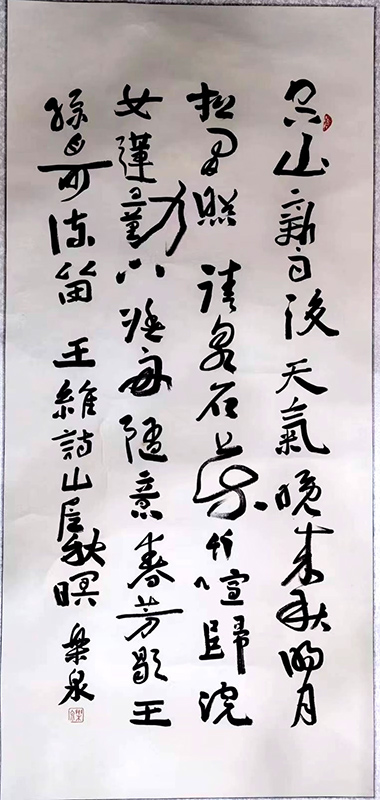 空山新雨後天氣晚來秋明月
松間照清泉石上流竹喧歸浣
女蓮動下漁舟隨意春芳歇王
孫自可留王維詩山居秋暝樂泉